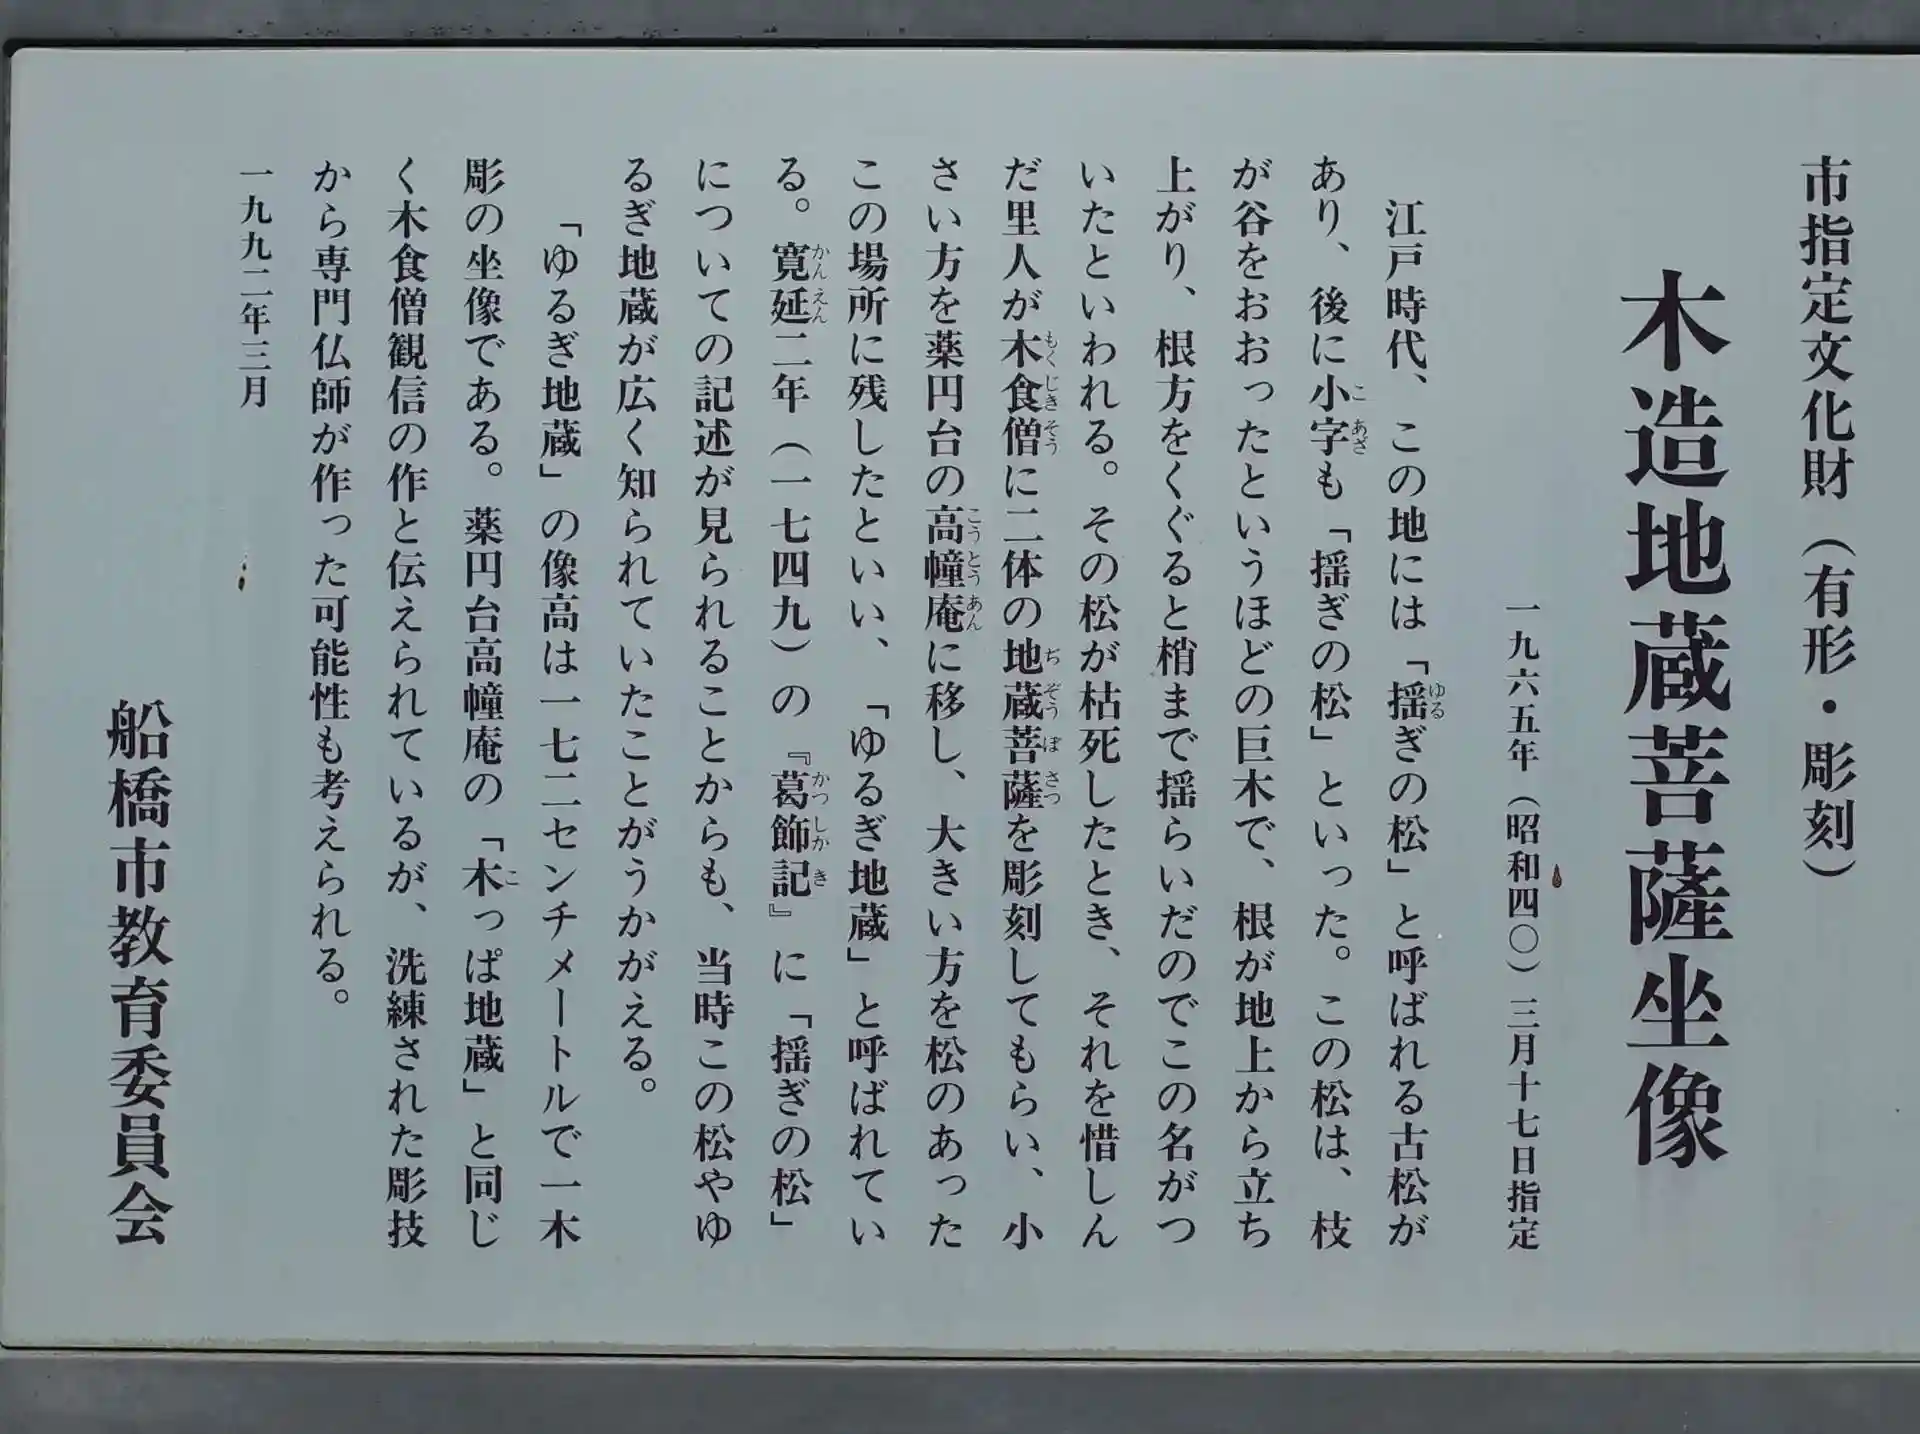 市指定文化財（有形・彫刻）
木造地蔵菩薩坐像
一九六五年（昭和四〇）三月十七日指定
江戸時代、この地には「揺ぎの松」と呼ばれる古松が
あり、後に小字も「揺ぎの松」といった。この松は、枝
が谷をおおったというほどの巨木で、根が地上から立ち
上がり、根方をくぐると梢まで揺らいだのでこの名がつ
いたといわれる。その松が枯死したとき、それを惜しん
だ里人が木食僧に二体の地蔵菩薩を彫刻してもらい、小
さい方を薬円台の高幢庵に移し、大きい方を松のあった
この場所に残したといい、「ゆるぎ地蔵」と呼ばれてい
る。寛延二年（一七四九）の『葛飾記』に「揺ぎの松」
についての記述が見られることからも、当時この松やゆ
るぎ地蔵が広く知られていたことがうかがえる。
「ゆるぎ地蔵」の像高は一七二センチメートルで一木
彫の坐像である。薬円台高幢庵の「木っぱ地蔵」と同じ
く木食僧観信の作と伝えられているが、洗練された彫技
から専門仏師が作った可能性も考えられる。
一九九二年三月
船橋市教育委員会